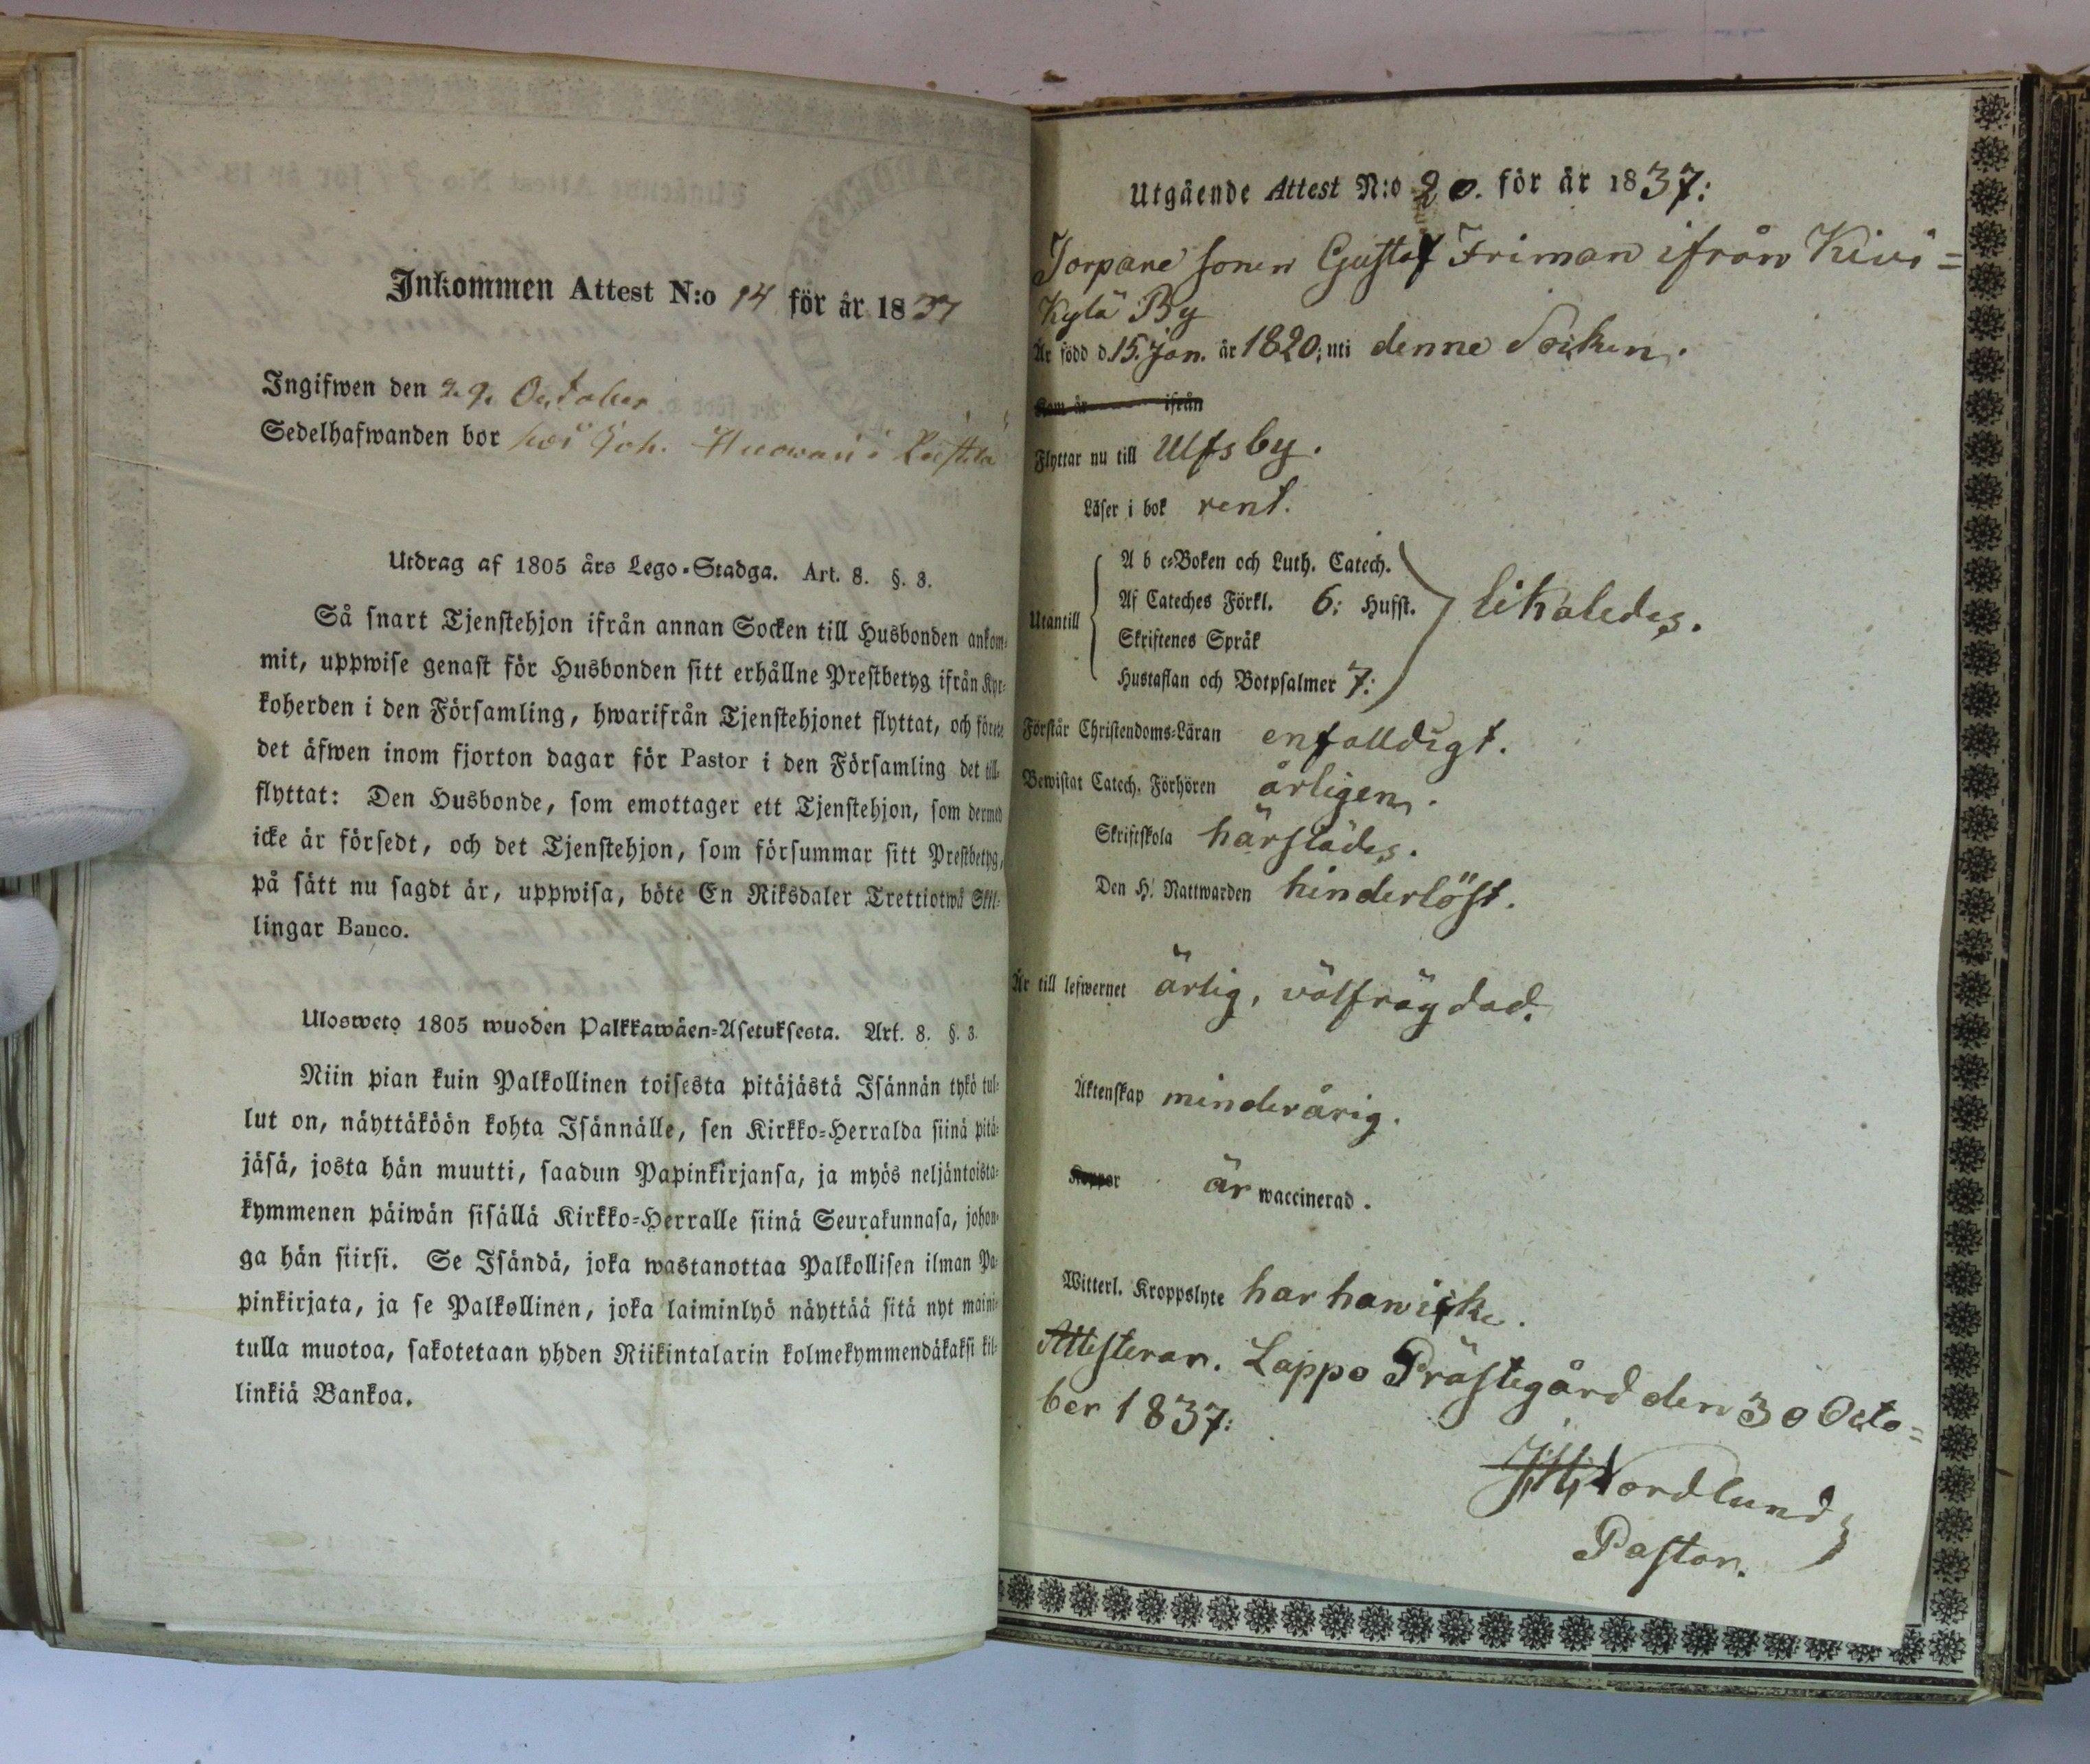 Inkommen Attest N:o 14 för år 1837
Ingifwen den 29. October
Sedelhafwanden bor hos Joh.
Utdrag af 1805 års Lego-Stadga. Art. 8. §. 3.
Så snart Tjenstehjon ifrån annan Socken till Husbonden ankom-
mit, uppwise genast för Husbonden sitt erhållne Prestbetyg ifrån Kyr-
koherden i den Församling, hwarifrån Tjenstehjonet flyttat, och förete
det äfwen inom fjorton dagar för Pastor i den Församling det till-
flyttat: Den Husbonde, som emottager ett Tjenstehjon, som dermed
icke är försedt, och det Tjenstehjon, som försummar sitt Prestbetyg,
på sätt nu sagdt är, uppwisa, böte En Riksdaler Trettiotwå Skil-
lingar Banco.
Ulosweto 1805 wuoden Palkkawäen-Asetuksesta. Art. 8. §. 3.
Niin pian kuin Palkollinen toisesta pitäjästä Isännän tykö tul-
lut on, näyttäköön kohta Isännälle, sen Kirkko-Herralda siinä pitä-
jäsä, josta hän muutti, saadun Papinkirjansa, ja myös neljäntoista-
kymmenen päiwän sisällä Kirkko-Herralle siinä Seurakunnasa, johon-
ga hän siirsi. Se Isändä, joka wastanottaa Palkollisen ilman Pa-
pinkirjata, ja se Palkollinen, joka laiminlyö näyttää sitä nyt maini-
tulla muotoa, sakotetaan yhden Riikintalarin kolmekymmendäkaksi kil-
linkiä Bankoa.
Utgående Attest N:o 20. för år 1837:
Torpare sonen Gustaf Friman ifrån Kivi=
Kylä By
Är född d. 15. Jan. år 1820; uti denne Socken.
Kom år ifrån
Flyttar nu till Ulfsby.
Läser i bok rent.
Utantill
A b c-Boken och Luth. Catech.
Af Cateches Förkl. 6: Hufst. likaledes.
Skriftenes Språk
Hustaflan och Botpsalmer 7:
Förstår Christendoms-Läran enfalldigt.
Bewistat Catech. Förhören årligen.
Skriftskola härstädes.
Den H. Nattwarden hinderlöst.
Är till lefwernet ärlig, välfrägdad.
Äktenskap minderårig.
Koppor är waccinerad.
Witterl. Kroppslyte har han icke.
Attesterar. Lappo Prästegård den 30 Octo=
ber 1837:
Nordlund
Pastor.